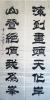 海到盡頭天作岸
山登絕頂我為峰